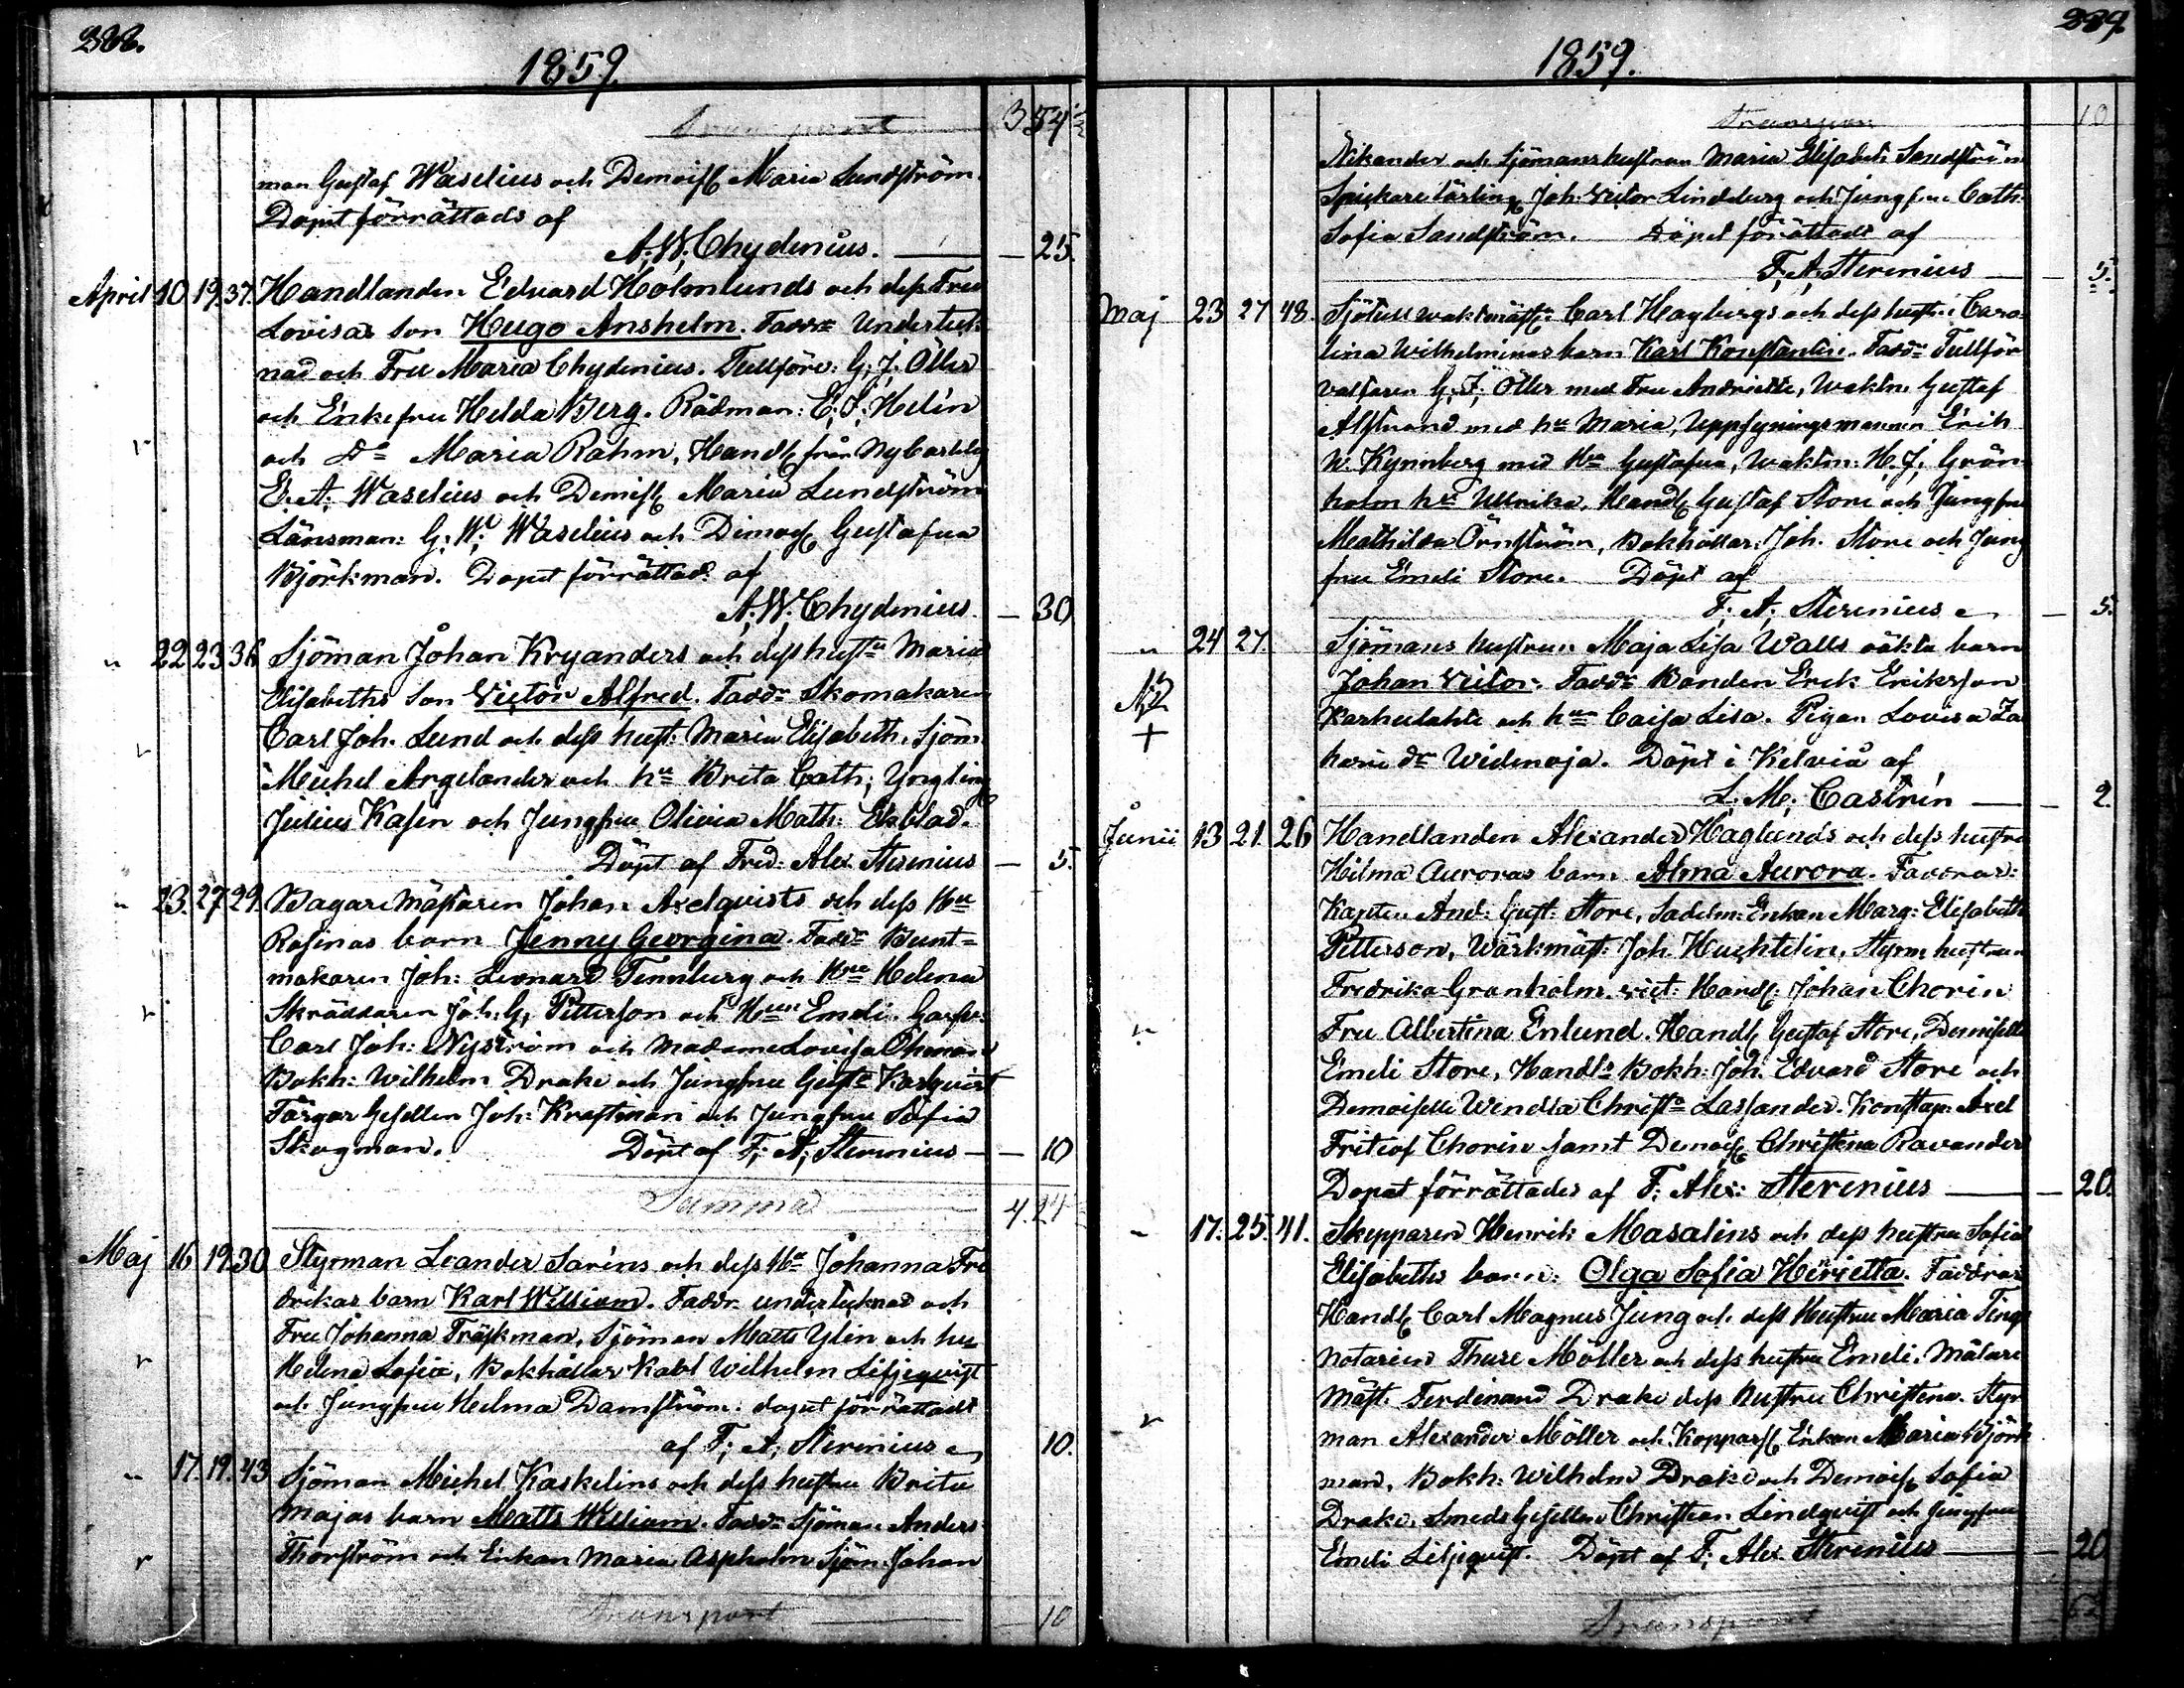 388.
1859
Transport 3 54
man Gustaf Waselius och Demois Maria Lundström.
Dopet förrättads af
A. W. Chydenius. — 25.
April 10. 19. 37. Handlanden Edvard Holmlunds och dess Fru
Lovisas son Hugo Anshelm. Faddr Underteck-
nad och Fru Maria Chydenius. Tullförv: G. J. Öller
och Enkefru Helda Berg. Rådman: E. J. Helin
och Dn Maria Rahm, Handl från Nykarleby
E. A. Waselius och Demois Maria Lundström
Länsman: G. W. Waselius och Demois Gustafva
Björkman. Dopet förrättad: af
A. W. Chydenius — 30
" 22 23 36 Sjöman Johan Kryanders och dess hustu Maria
Elisabeths son Victor Alfred. Faddr Skomakaren
Carl Joh. Lund och dess hust: Maria Elisabeth, Sjöm:
Michel Argelander och hu Brita Cath; Yngling
Julius Kasen och Jungfru Olivia Math: Ekblad.
Döpt af Fred: Alex Sterenius — 5.
" 23. 27 29. Bagare Mästaren Johan Axelqvists och dess Hu
Rosinas barn Jenny Georgina. Faddr Bunt-
makaren Joh: Leonard Tennberg och Hru Helena
Skräddaren Joh. G. Petterson och Hru Emeli. Garfv:
Carl Joh: Nyström och Madame Lovisa Öhman
Bokh: Wilhelm Drake och Jungfru Gusta Karlqvist
Färgar Gesellen Joh: Krastman och Jungfru Sofia
Skogman. Döpt af F. A. Sterenius — 10
Summa 4. 24
Maj 16 19. 30 Styrman Leander Saréns och dess Hu Johanna Fre
drikas barn Karl William. Faddr. undertecknad och
Fru Johanna Träskman, Sjöman Matts Ylin och hu
Helena Sofia, Bokhållar Karl Wilhelm Liljeqvist
och Jungfru Helma Damström: dopet förrättadt
af F. A. Sterenius 10.
" 17. 19. 43 Sjöman Michel Kaskelins och dess hustru Brita
Majas barn Matts William. Faddr Sjöman Anders
Thorström och Enkan Maria Aspholm Sjöm: Johan
Transport — 10
389
1859.
Transport 10
Nikander och Sjömanshustrun Maria Elisabeth Sandström
Spickare lärling Joh: Victor Lindeberg och Jungfru Cath:
Sofia Sandström. Döpet förättadt af
F. A. Sterenius — 5.
Maj 23 27 48. Sjötull waktmäst: Carl Hagbergs och dess hustru Caro-
lina Wilhelminas barn Karl Konstantin. Faddr Tullför
valtaren G. J. Öller med Fru Andriette, Waktm Gustaf
Alstrand med hu Maria, Uppsyningsmannen Erik
W. Kynnberg med Hu Gustafva, waktm: H. J. Grön-
holm hu Ulrika, Handl Gustaf Store och Jungfru
Mathilda Örnström, Bokhållar: Joh. Store och Jung
fru Emeli Store. Döpt af
F. A. Sterenius — 5.
" 24 27. Sjömans hustrun Maja Lisa Walls oäkta barn
Johan Victor. Faddr Bonden Erik Eriksson
Karhulahti och hru Caisa Lisa. Pigan Lovisa Za
karia dr Widenoja. Döpt i Kelviå af
L. M. Castrén — 2.
Junii 13 21. 26 Handlanden Alexander Haglunds och dess hustru
Hilma Auroras barn Alma Aurora. Faddrar:
Kapten And: Gust: Store, Sadelm: Enkan Marg: Elisabeth
Petterson, Wärkmäst: Joh. Huchtelin, Styrm hustrun
Fredrika Granholm. Vict: Handl: Johan Chorin
Fru Albertina Enlund. Handl Gustaf Store, Demiselle
Emeli Store, Handls Bokh: Joh. Edvard Store och
Demoiselle Wendla Christa Lassander. Konstap: Axel
Fritiof Chorin samt Demois Christina Ravander
Dopet förrättades af F. Alex: Sterenius — 20.
" 17. 25. 41. Skepparen Henrik Masalins och dess hustru Sofia
Elisabeths barn: Olga Sofia Henrietta. Faddrar
Handl Carl Magnus Jung och dess Hustru Maria Ting
Notarien Thure Möller och dess hustru Emeli. Målare
mäst. Ferdinand Drake dess hustru Christina. Styr
man Alexander Möller och Koppars Enkan Maria Björk
man, Bokh: Wilhelm Drake och Demois Sofia
Drake. Smeds Gesellen Christian Lindqvist och Jungfru
Emeli Liljeqvist. Döpt af F. Alex Sterenius — 20
Transport 62